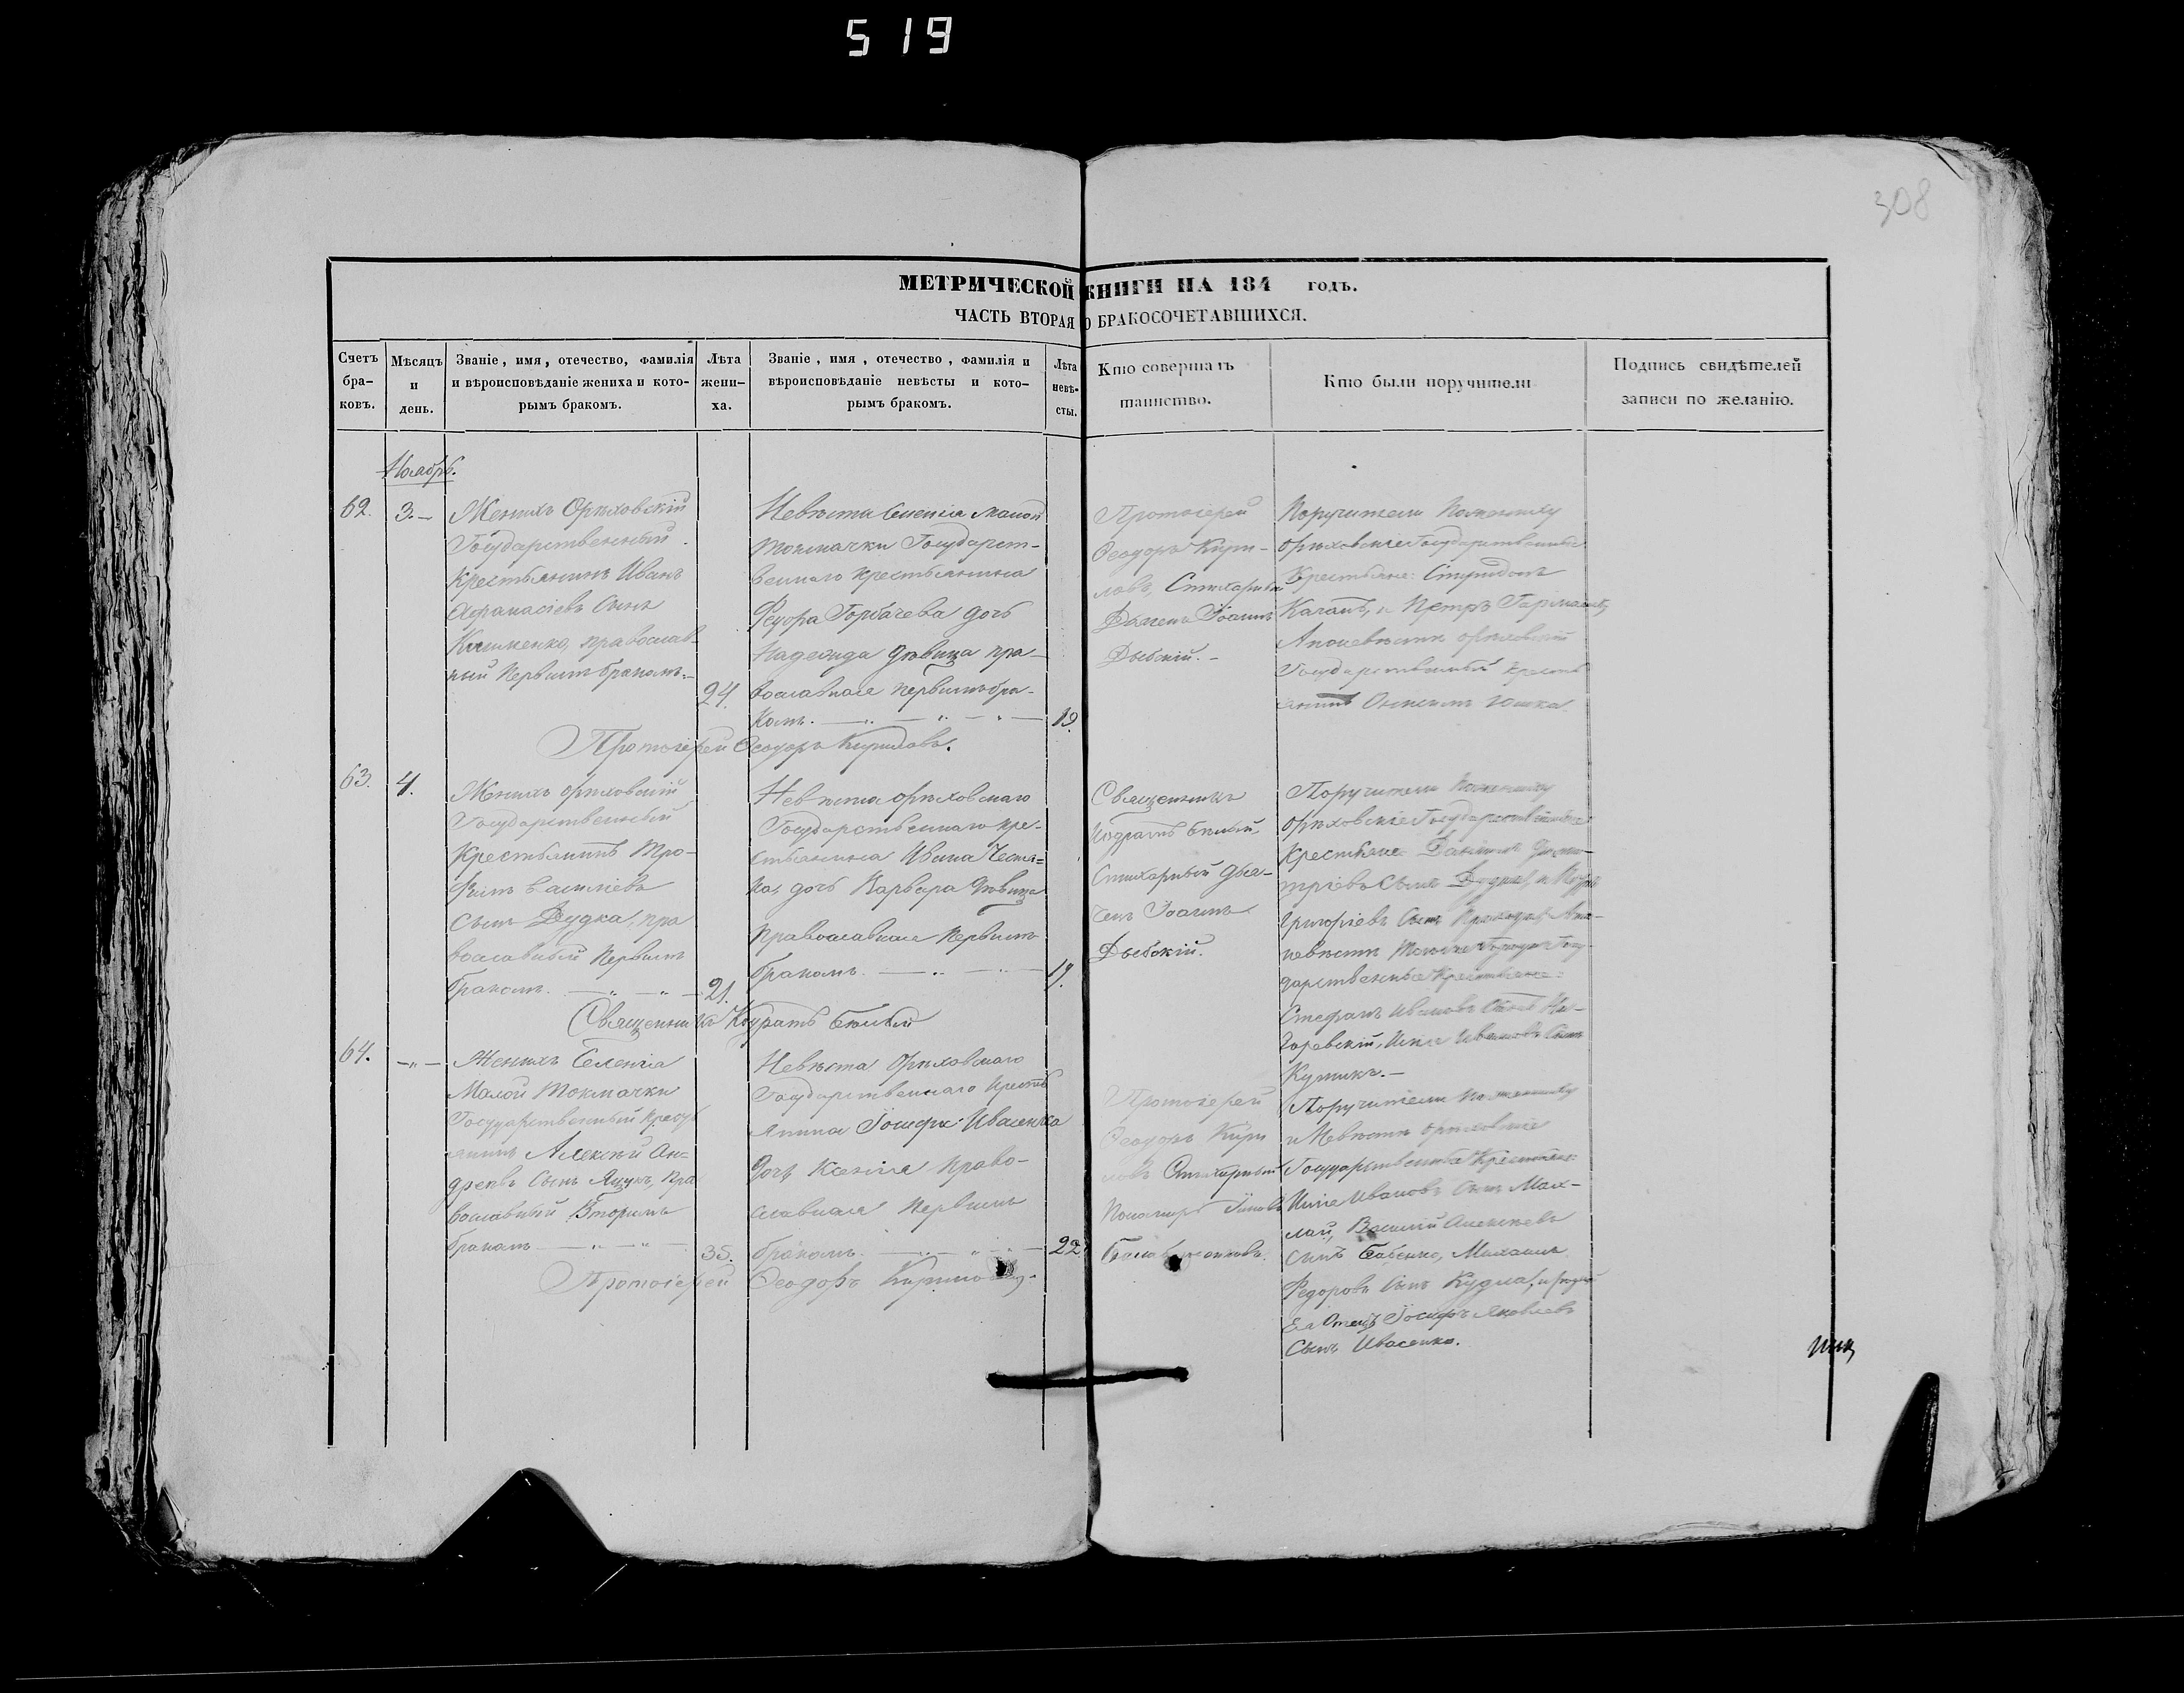 519
308
МЕТРИЧЕСКОЙ КНИГИ НА 184 годъ.
ЧАСТЬ ВТОРАЯ О БРАКОСОЧЕТАВШИХСЯ.
Счетъ бра-ковъ.
Мѣсяцъ и день.
Званіе, имя, отечество, фамилія и вѣроисповѣданіе жениха и кото-рымъ бракомъ.
Лѣта жени-ха.
Званіе, имя, отечество, фамилія и вѣроисповѣданіе невѣсты и кото-рымъ бракомъ.
Лѣта невѣ-сты.
Кто совершалъ таинство.
Кто были поручители
Подпись свидѣтелей записи по желанію.
Ноябрь.
62.
3.
Женихъ Орѣховскій
Государственный
Крестьянинъ Иванъ
Афанасіевъ Сынъ
православ-
ный Первымъ бракомъ.
24.
Невѣста Селенія Малой
Токмачки Государст-
веннаго крестьянина
Федора Горбачева дочь
Надежда дѣвица пра-
вославная первымъ бра-
комъ.
19.
Протоіерей
Ѳеодоръ Кири-
ловъ, Стихарный
Дьячекъ Іоаннъ
Дыбскій.
Поручители По жениху
орѣховскіе Государственные
Крестьяне: Спиридонъ
и Петръ
А по невѣсте орѣховскій
Государственный Кресть
янинъ Юшка.
Протоіерей Ѳеодоръ Кириловъ.
63.
4.
Женихъ орѣховскій
Государственный
Крестьянинъ Тро-
фимъ Василіевъ
Сынъ Дудка, пра
вославный Первымъ
бракомъ.
21.
Невѣста орѣховскаго
Государственнаго кре-
стьянина Ивана
дочь Варвара дѣвица
Православная Первымъ
бракомъ.
19.
Священникъ
Кодратъ Бѣлый,
Стихарный дья-
чекъ Іоаннъ
Дыбскій.
Поручители По жениху
орѣховскіе Государственные
Крестьяне: Даніилъ Дими-
тріевъ Сынъ Дудка, и
Григоріевъ Сынъ
невѣсте Госу-
дарственные Крестьяне:
Стефанъ Ивановъ Сынъ
Ивановъ Сынъ
Священникъ Кодратъ Бѣлый
64.
Женихъ Селенія
Малой Токмачки
Государственный Кресть
янинъ Алексѣй Ан-
дреевъ Сынъ Яцукъ, Пра
вославный Вторымъ
бракомъ
35.
Невѣста Орѣховскаго
Государственнаго Кресть
янина Іосифа Ивасенка
Дочь Ксенія Право-
славная Первымъ
бракомъ.
22.
Протоіерей
Ѳеодоръ Кири
ловъ Стихарный
Пономарь
Поручители По жениху
и Невѣсте орѣховскіе
Государственные Крестьяне:
Илія Ивановъ Сынъ
Василій Алексѣевъ
Сынъ Бабенко, Михаилъ
Федоровъ Сынъ Кудла, и
Ея Отецъ Іосифъ Яковлевъ
Сынъ Ивасенко.
Протоіерей Ѳеодоръ